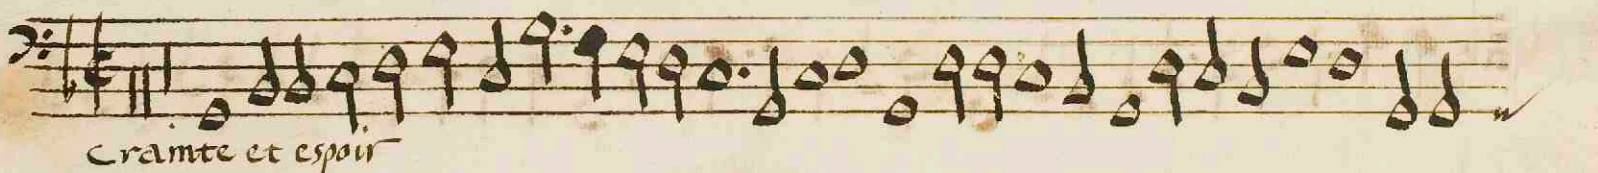 Crainte et espoir